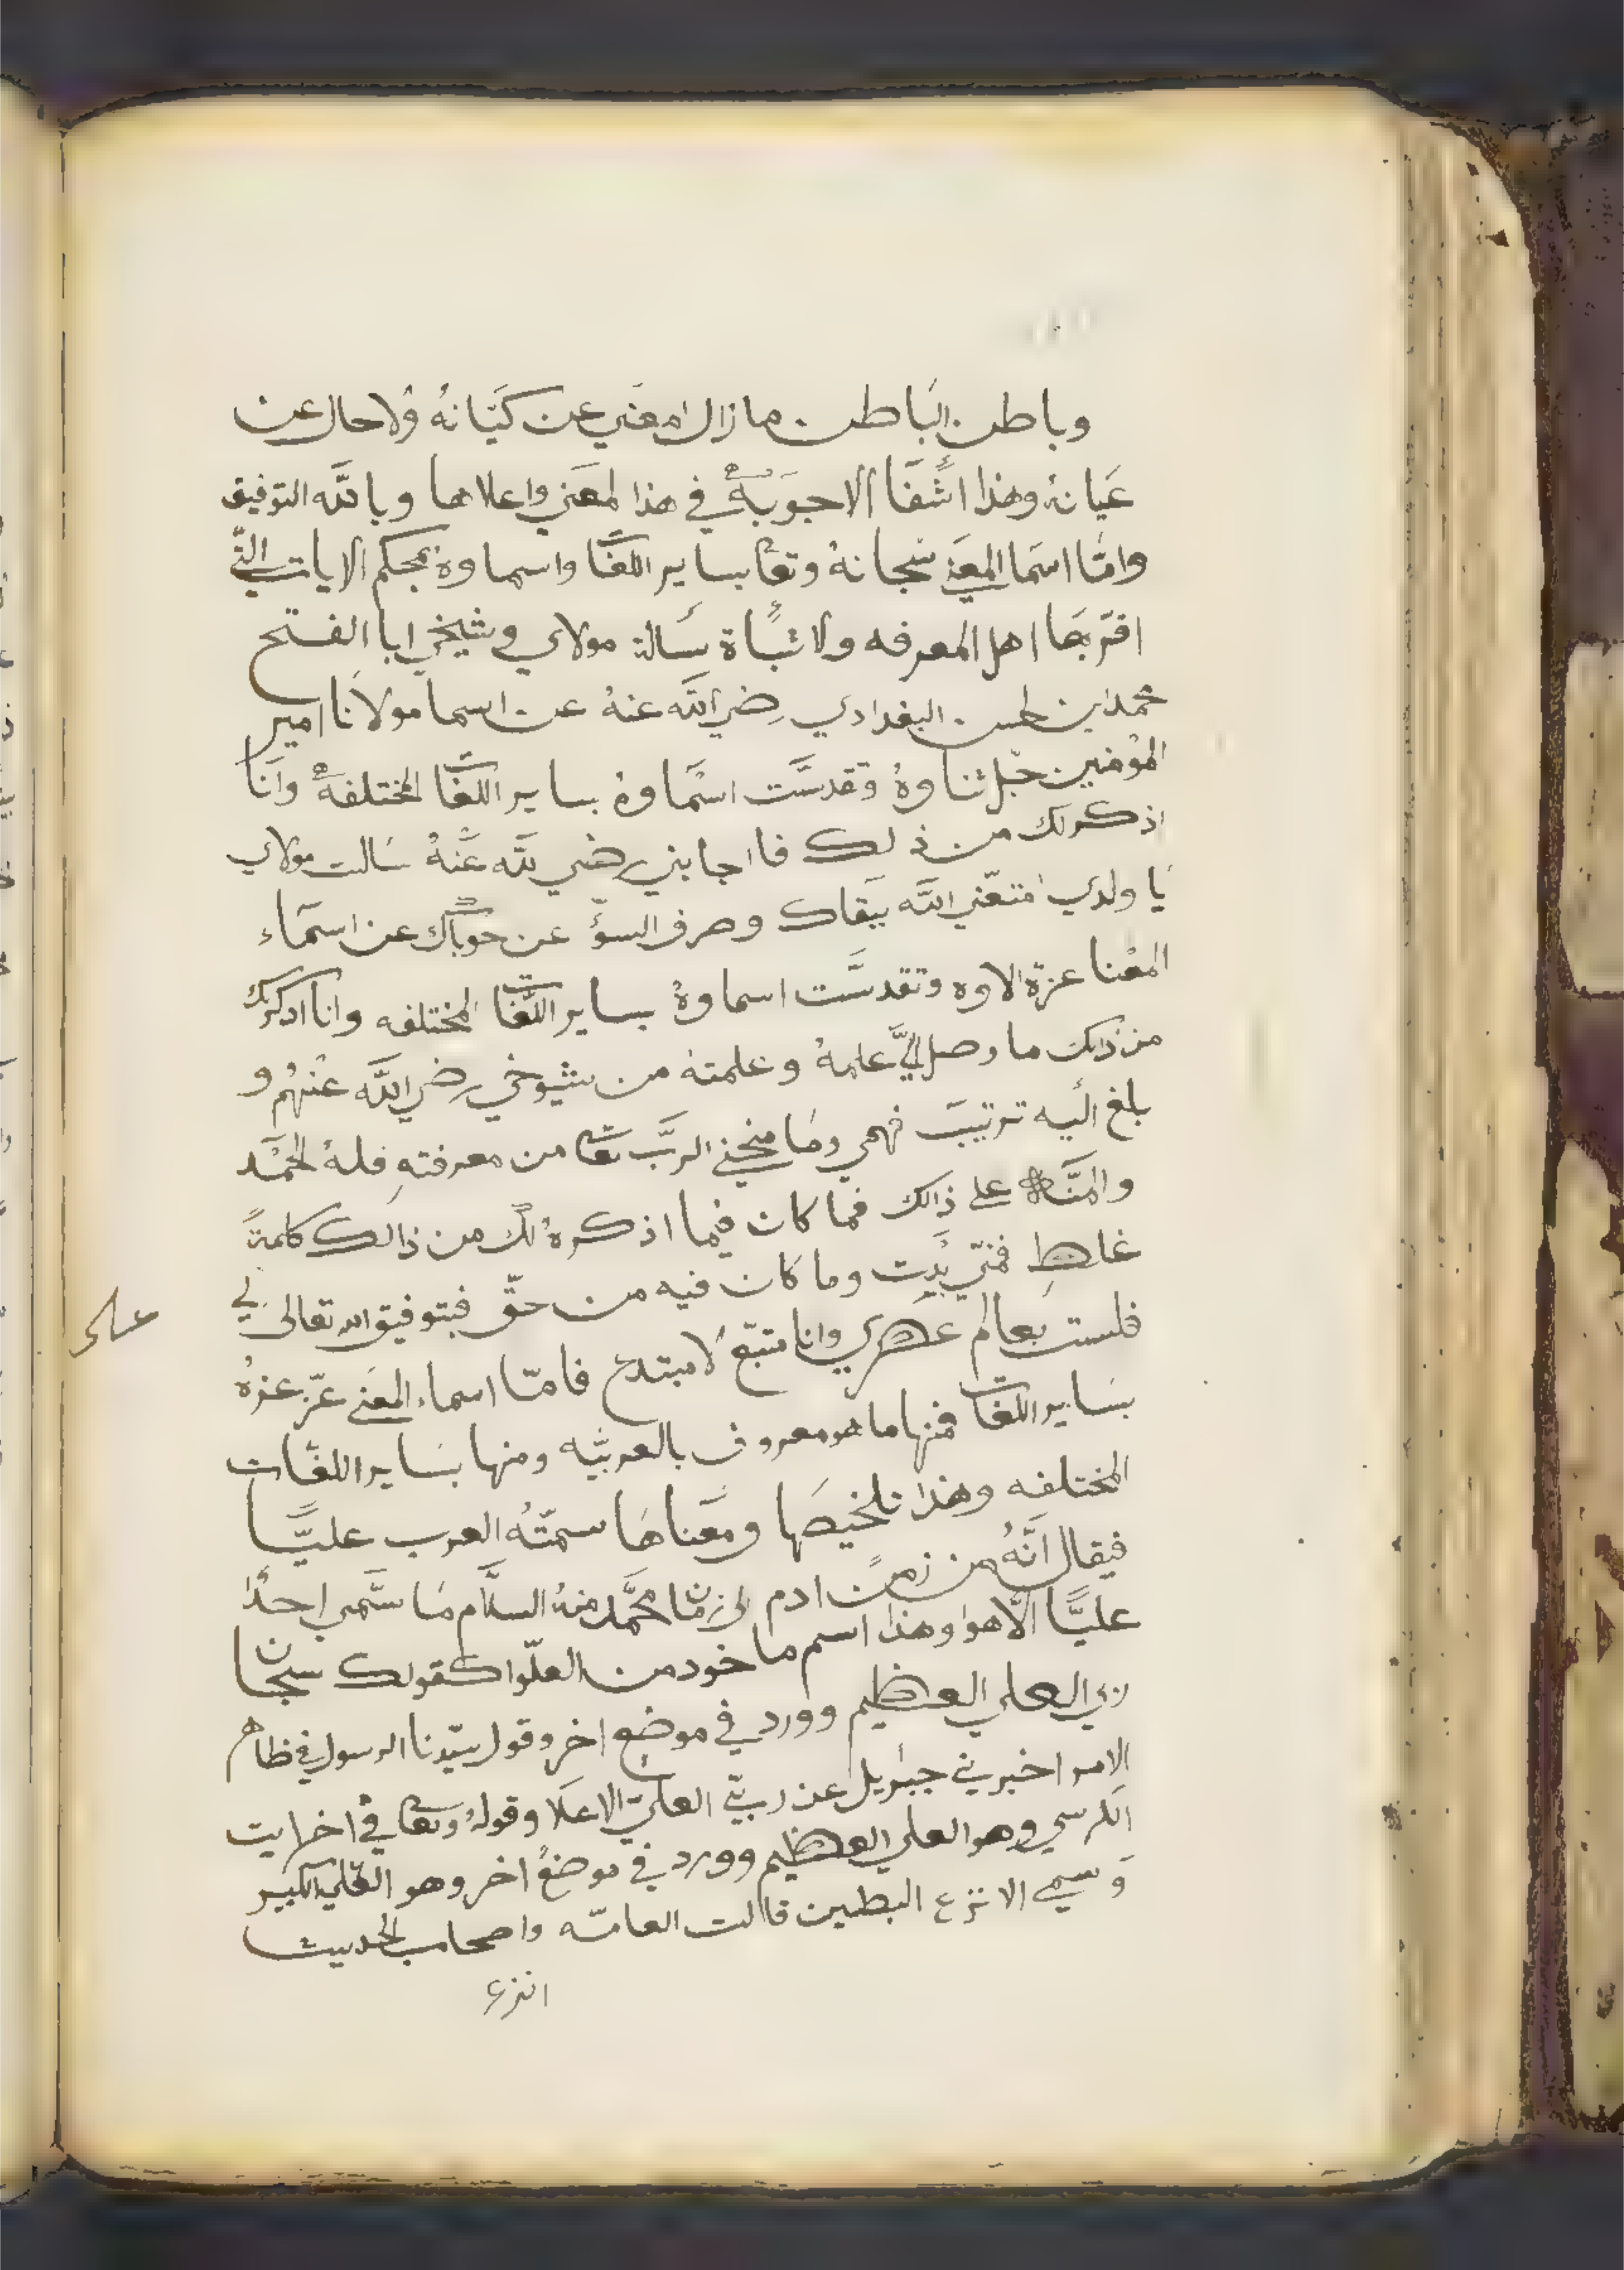 وباطن الباطن ما زال امعني عن كيَانهُ وُلا حال عن
عَيانهُ وهذا اشفَا الاجوَبهُ في هذا لمعَني واعلاها وبالله التوفيق
وامّا اسمَا المعَنى سبحانهُ وتعا بساير اللغّا واسماوهُ بمحكم الايات التّي
اقتربهَا اهل المعرفه ولا ثبَاة سَالة مولاي وشيخي ابا الفتح
محمد ابن لحسن البغدادي رضي الله عنهُ عن اسما مولانا امير
المؤمنين جّل ثناوهُ وتقدسَّت اسمَاوهُ بساير اللغّات المختلفهَ وانَا
اذكر لك من ذلك فااجابني رضي لله عَنهُ سَالت مولاي
يَا ولدي امتعّني الله ببَقاك وصرف السؤّ عن حوبَاك عن اسمَاء
المعْنا عزة الاوه وتقدسَّت اسماوهُ بساير اللّغات المختلفه وانا اذكر لك
من ذلك ما وصل اليَّ علمهُ وعلمته من شيوخي رضي الله عنهُم و
بلغ اليه ترتيبَ فهمي ومَا منحني الربَّ تعا من معرفتهِ فلهُ الحمَد
والمنَّه على ذالك فما كان فيما اذكرهُ لك من ذالك كلمةً
غلطٍ فمنّي بَدِت وما كان فيه من حقّ فبتوفيق الله تعالى لي
فلست بعالم عصري وانا متبّع لَا مبتدع فامّا اسماء المعَنى عزّ عزهُ
بسَاير اللغات فمنها ما هو معروف بالعربيّه ومنها بسَاير اللغّات
المختلفه وهذا تلخيصَها ومعَناهَا سمّتهُ العرب عليًّا
فيقال انَّهُ من زمن ادم الى زمان محمَّد منهُ السلَّام مَا سَّمي احدًا
عليًّا الّا هوا وهذا اسم ماخود من العلّوا كقولك سبحان
ربي العلي العظيم وورد في موضع اخر وقول سيّدنا الرسول في ظاهر
الامر اخبرني جبرَايل عن ربّي العليّ الاعلَا وقولهُ وتعا في اخر ايت
الكرسي وهو العلي العظيم وورد في موضعُ اخر وهو العَلي الكبير
وَسمي الانزع البطين قالت العامّه واصحاب الحديث
انزع
على